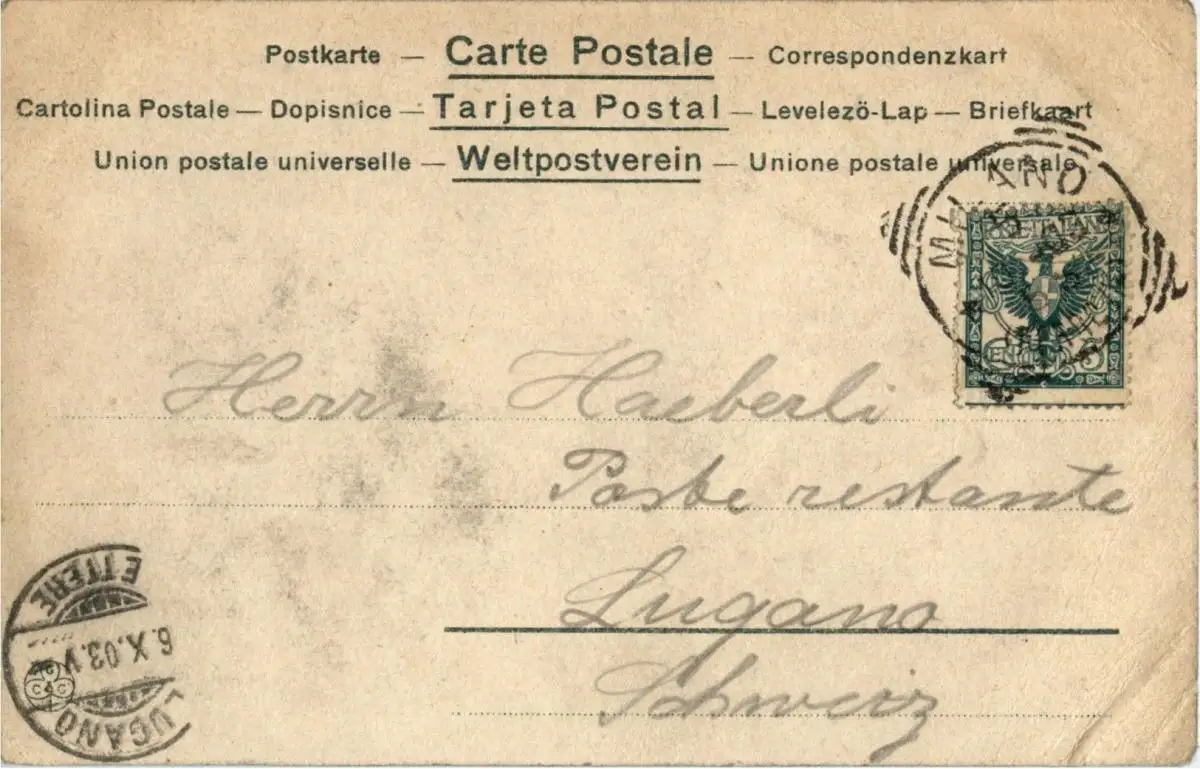 Postkarte — Carte Postale — Correspondenzkart
Cartolina Postale — Dopisnice — Tarjeta Postal — Levelezö-Lap — Briefkaart
Union postale universelle — Weltpostverein — Unione postale universale
MILANO
Herrn Haeberli
Poste restante
Lugano
Schweiz
ETTERE
6.X.03.V
LUGANO